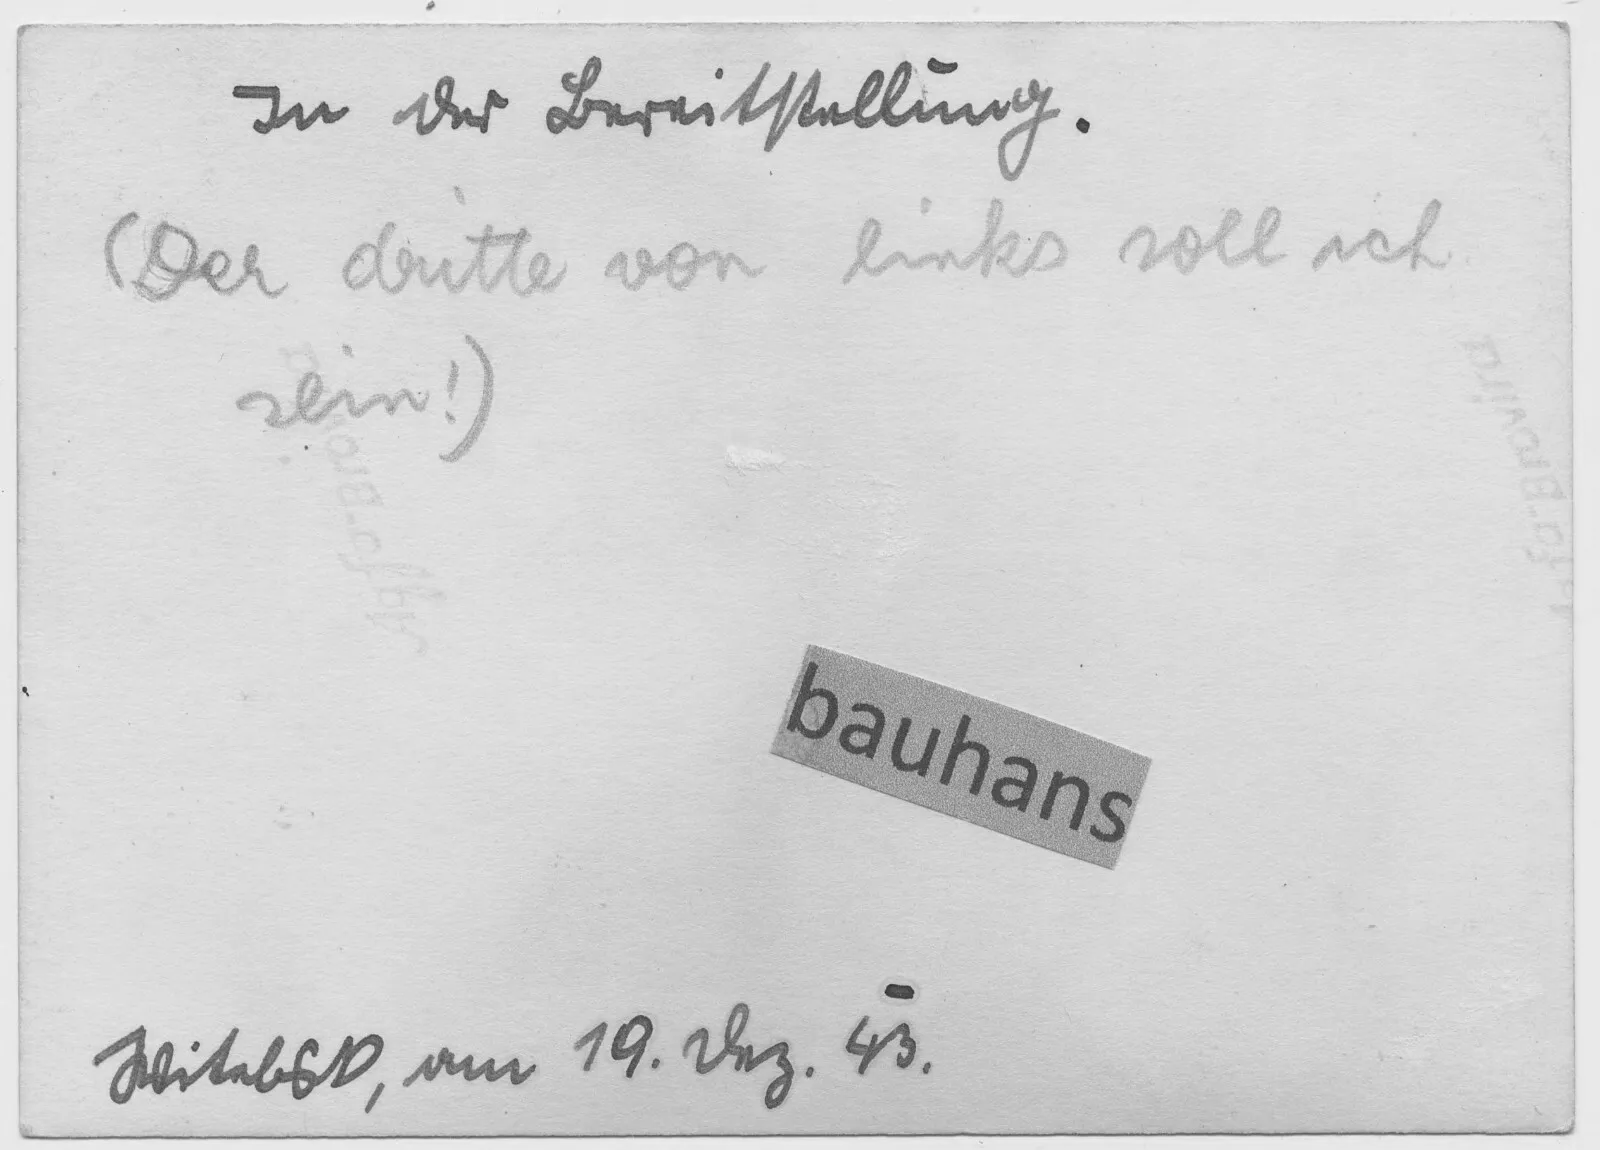 In der Bereitstellung.
(Der dritte von links soll ich
sein!)
bauhans
Witebsk, am 19. Dez. 43.